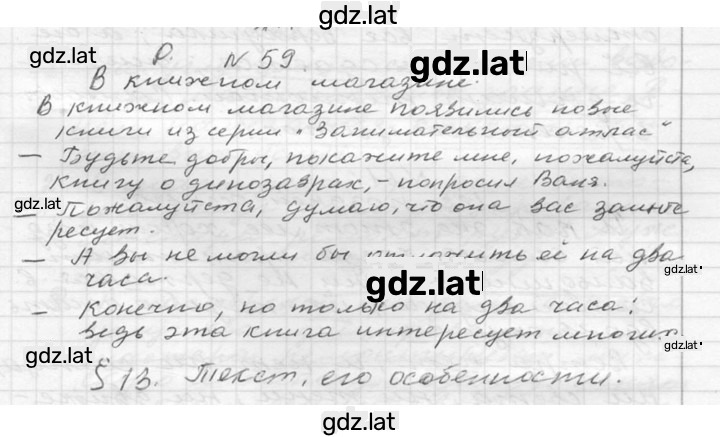 gdz.lat
Р. N 59
gdz.lat
gdz.lat
В книжном магазине.
В книжном магазине появились новые
книги из серии "Занимательный атлас"
– Будьте добры, покажите мне, пожалуйста,
книгу о динозаврах, – попросил Ваня.
gdz.lat
– Пожалуйста, думаю, что она вас заинте
ресует.
– А вы не могли бы отложить ей на два
gdz.lat
часа.
gdz.lat
– Конечно, но только на два часа:
ведь эта книга интересует многих.
gdz.lat
gdz.lat
§ 13. Текст, его особенности.
gdz.lat